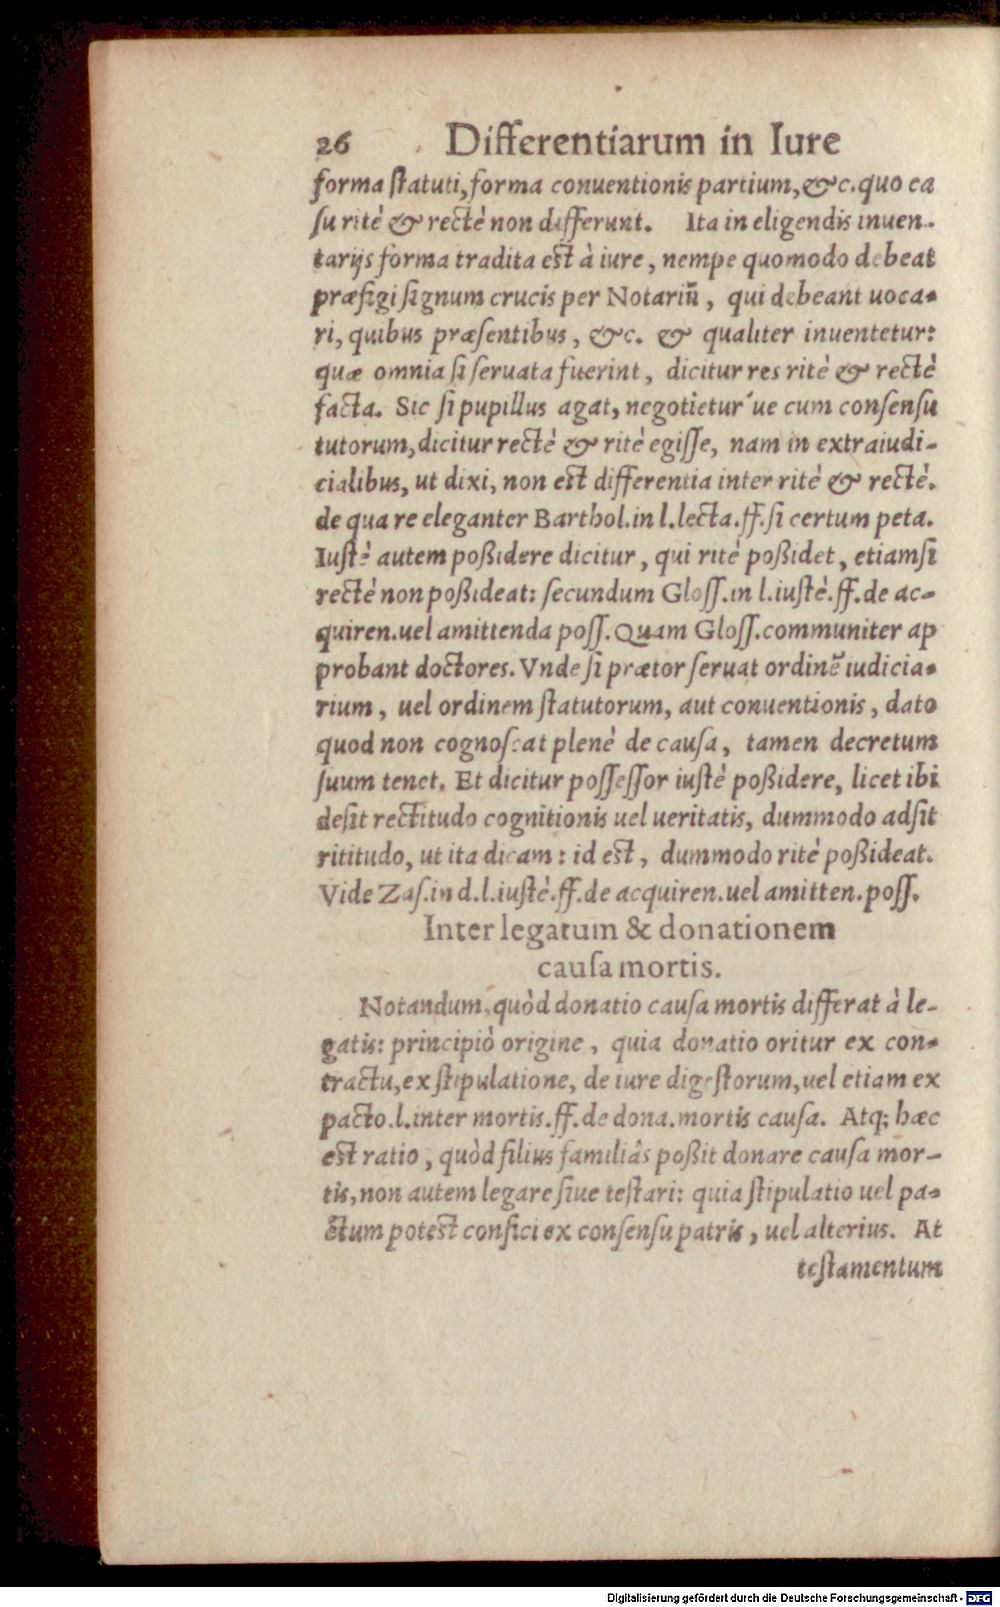 26 Differentiarum in Iure
forma ſtatuti, forma conuentionis partium, &c. quo ea
ſu ritè & rectè non differunt. Ita in eligendis inuen-
tarijs forma tradita eſt à iure, nempe quomodo debeat
præfigi ſignum crucis per Notariũ, qui debeant uoca-
ri, quibus præſentibus, &c. & qualiter inuentetur:
quæ omnia ſi ſeruata fuerint, dicitur res ritè & rectè
facta. Sic ſi pupillus agat, negotietur'ue cum conſenſu
tutorum, dicitur rectè & ritè egiſſe, nam in extraiudi-
cialibus, ut dixi, non eſt differentia inter ritè & rectè.
de qua re eleganter Barthol. in l. lecta. ff. ſi certum peta.
Iuſtè autem poßidere dicitur, qui ritè poßidet, etiamſi
rectè non poßideat: ſecundum Gloſſ. in l. iuſtè. ff. de ac-
quiren. uel amittenda poſſ. Quam Gloſſ. communiter ap
probant doctores. Vnde ſi prætor ſeruat ordinẽ iudicia-
rium, uel ordinem ſtatutorum, aut conuentionis, dato
quod non cognoſcat plenè de cauſa, tamen decretum
ſuum tenet. Et dicitur poſſeſſor iuſtè poßidere, licet ibi
deſit rectitudo cognitionis uel ueritatis, dummodo adſit
rititudo, ut ita dicam: id eſt, dummodo ritè poßideat.
Vide Zaſ. in d. l. iuſtè. ff. de acquiren. uel amitten. poſſ.
Inter legatum & donationem
cauſa mortis.
Notandum, quòd donatio cauſa mortis differat à le-
gatis: principiò origine, quia donatio oritur ex con-
tractu, ex ſtipulatione, de iure digeſtorum, uel etiam ex
pacto. l. inter mortis. ff. de dona. mortis cauſa. Atq; hæc
eſt ratio, quòd filius familiâs poßit donare cauſa mor-
tis, non autem legare ſiue teſtari: quia ſtipulatio uel pa-
ctum poteſt confici ex conſenſu patris, uel alterius. At
teſtamentum
Digitalisierung gefördert durch die Deutsche Forschungsgemeinschaft - DFG